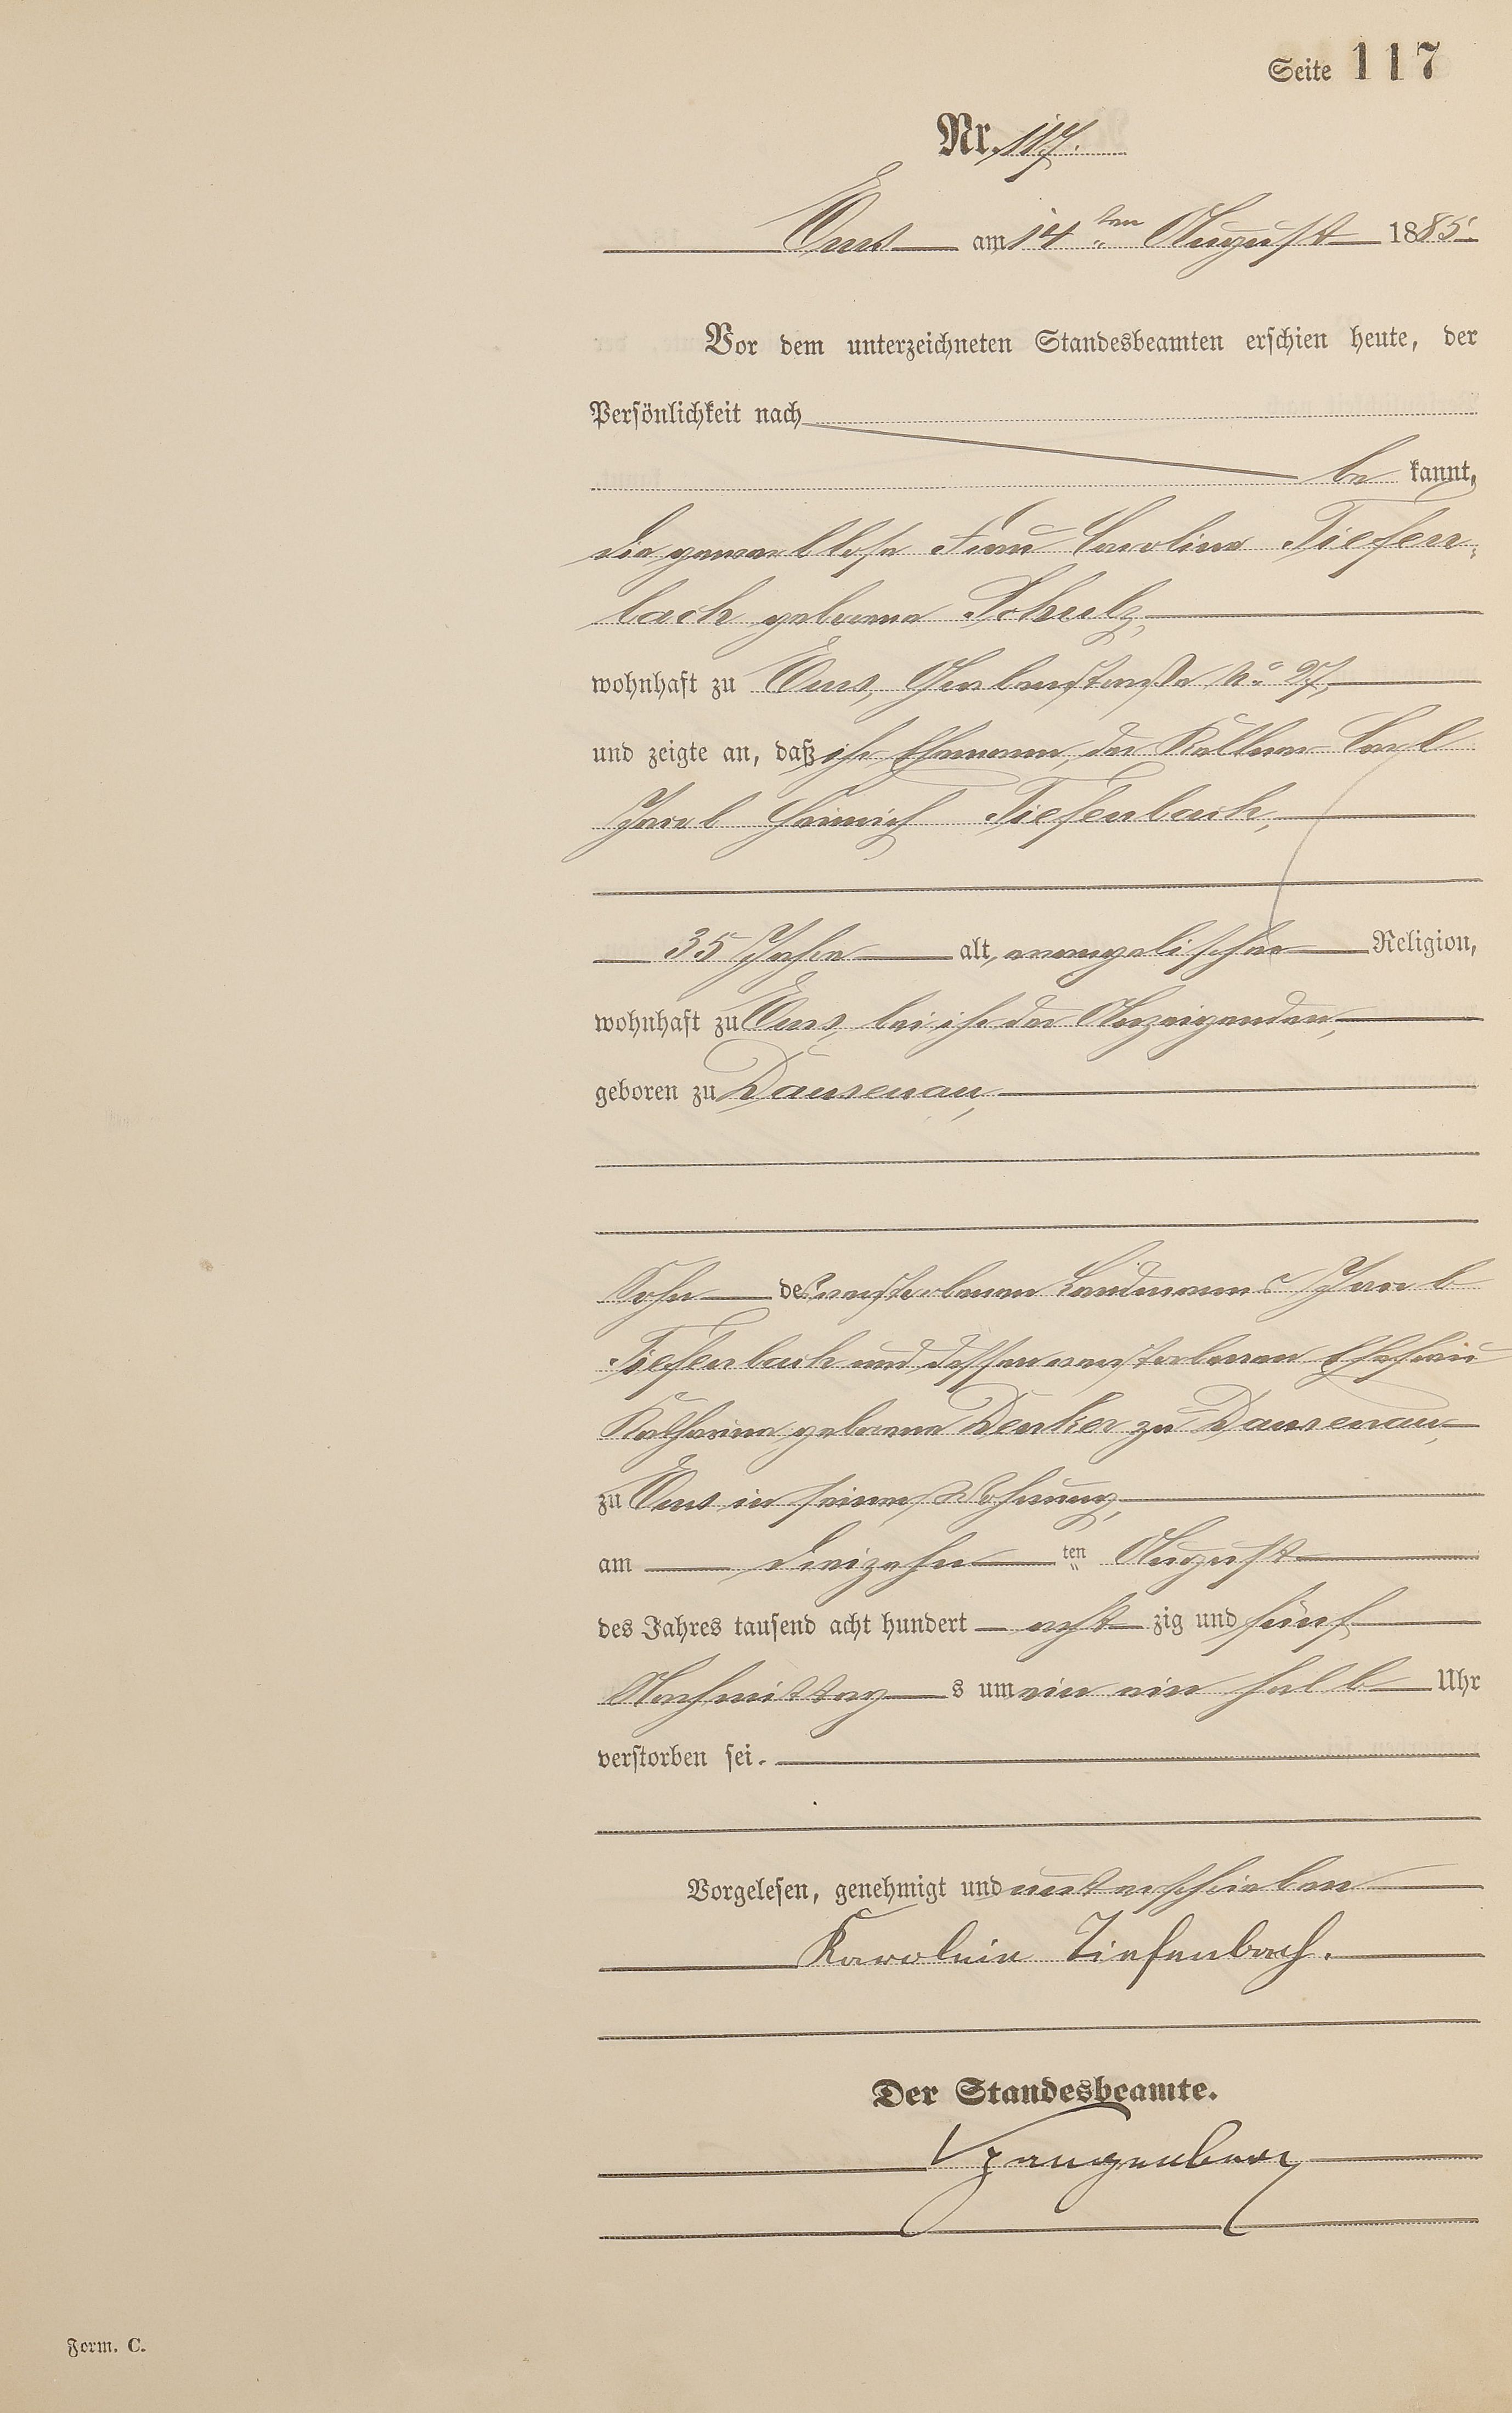 Seite 117
Nr. 117.
Ems am 14ten August 1885.
Vor dem unterzeichneten Standesbeamten erschien heute, der
Persönlichkeit nach
be kannt,
die gewerblose Frau Caroline Tiefen-
bach geborene Schulz,
wohnhaft zu Ems, Grabenstraße No 27,
und zeigte an, daß ihr Ehemann, der Kellner Carl
Jacob Heinrich Tiefenbach,
35 Jahre alt, evangelischer Religion,
wohnhaft zu Ems, bei ihr der Anzeigenden,
geboren zu Dausenau,
Sohn des verstorbenen Landmanns Jacob
Tiefenbach und dessen verstorbenen Ehefrau
Katharina geborene Denker zu Dausenau,
zu Ems in seiner Wohnung,
am dreizehn ten August
des Jahres tausend acht hundert acht zig und fünf
Nachmittag s um ein ein halb Uhr
verstorben sei.
Vorgelesen, genehmigt und unterschrieben
Karoline Tiefenbach.
Der Standesbeamte.
Form. C.